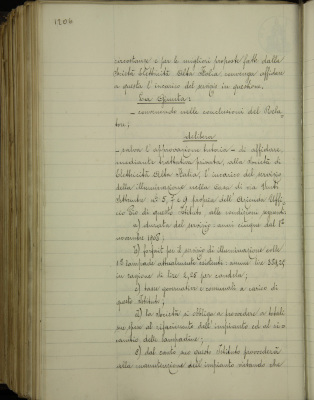 1206
circostanze e per le migliori proposte fatte dalla
Società Elettricità Alta Italia convenga affidare
a questa l'incarico del servizio in questione.
La Giunta:
- convenendo nelle conclusioni del Rela-
tore;
delibera
- salva l'approvazione tutoria - di affidare,
mediante trattativa privata, alla Società di
Elettricità Alta Italia, l'incarico del servizio
della illuminazione nelle case di via Venti
Settembre nⁱ 5, 7 e 9 proprie dell'Azienda Uffi-
cio Pio di questo Istituto alle condizioni seguenti
a) durata del servizio: anni cinque dal 1°
novembre 1908;
b) forfait per il servizio di illuminazione sulle
lampade attualmente esistenti: annue lire
in ragione di lire 2,25 per candela;
c) tasse governative e comunali a carico di
questo Istituto;
d) la Società si obbliga a provvedere a totali
sue spese al rifacimento dell'impianto ed al ri-
cambio delle lampadine;
e) dal canto suo questo Istituto provvederà
alla manutenzione dell'impianto restando che